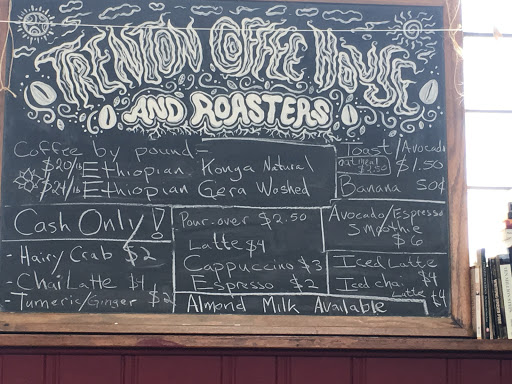 TRENTON COFFEE HOUSE
AND ROASTERS
Coffee by pound-
$20/lb Ethiopian Konga Natural
$24/lb Ethiopian Gera Washed
Toast/Avocado
oatmeal $2.50
$1.50
Banana 50¢
Cash Only!
- Hairy Crab $2
Chai Latte $4
- Tumeric/Ginger $2
Pour-over $2.50
Latte $4
Cappuccino $3
Espresso $2
Avocado/Espresso
Smoothie
$6
Iced Latte
$4
Iced chai
Latte $4
Almond Milk Available